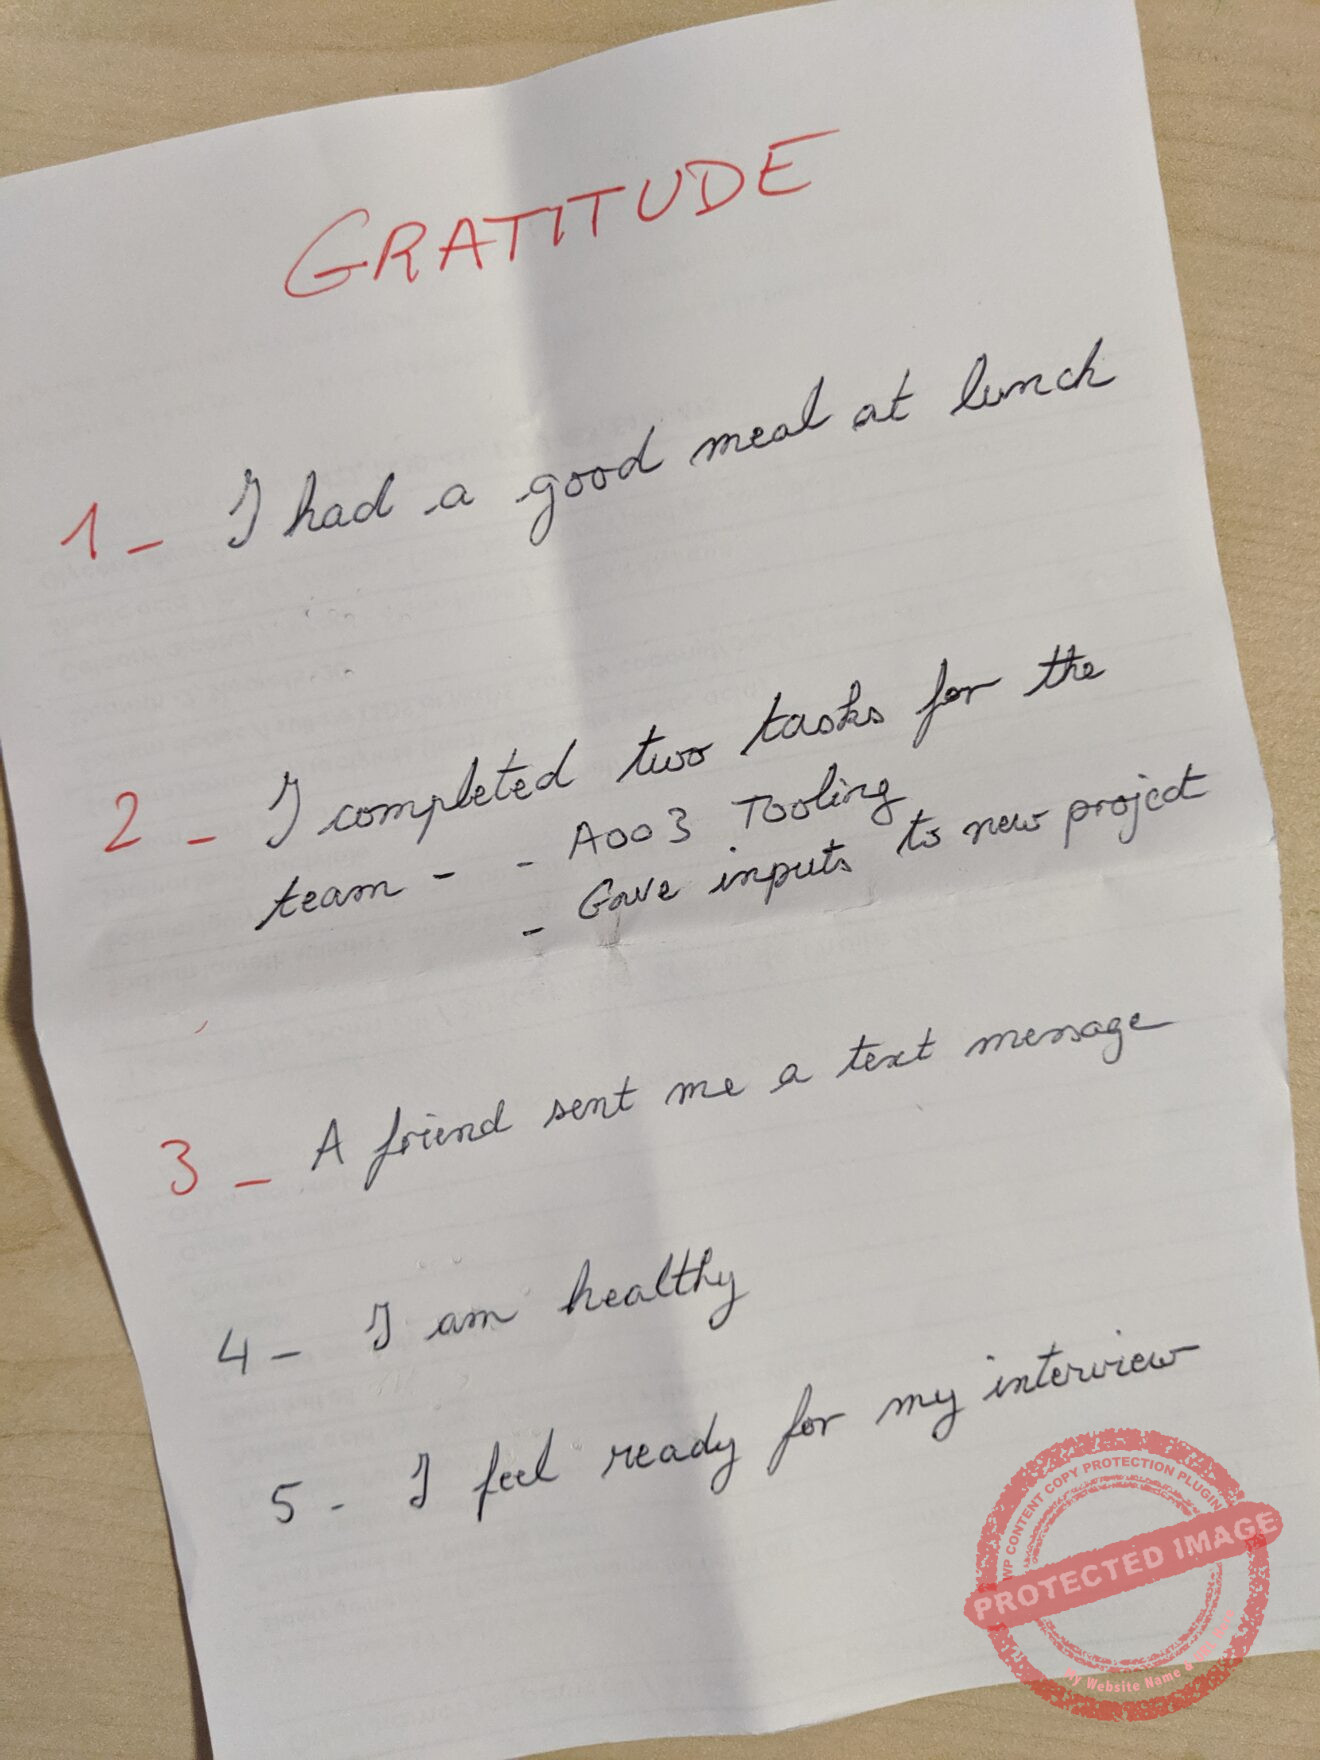 GRATITUDE
1 - I had a good meal at lunch
2 - I completed two tasks for the
team - - A003 Tooling
- Gave inputs to new project
3 - A friend sent me a text message
4 - I am healthy
5 - I feel ready for my interview
WP CONTENT COPY PROTECTION PLUGIN
PROTECTED IMAGE
My Website Name &